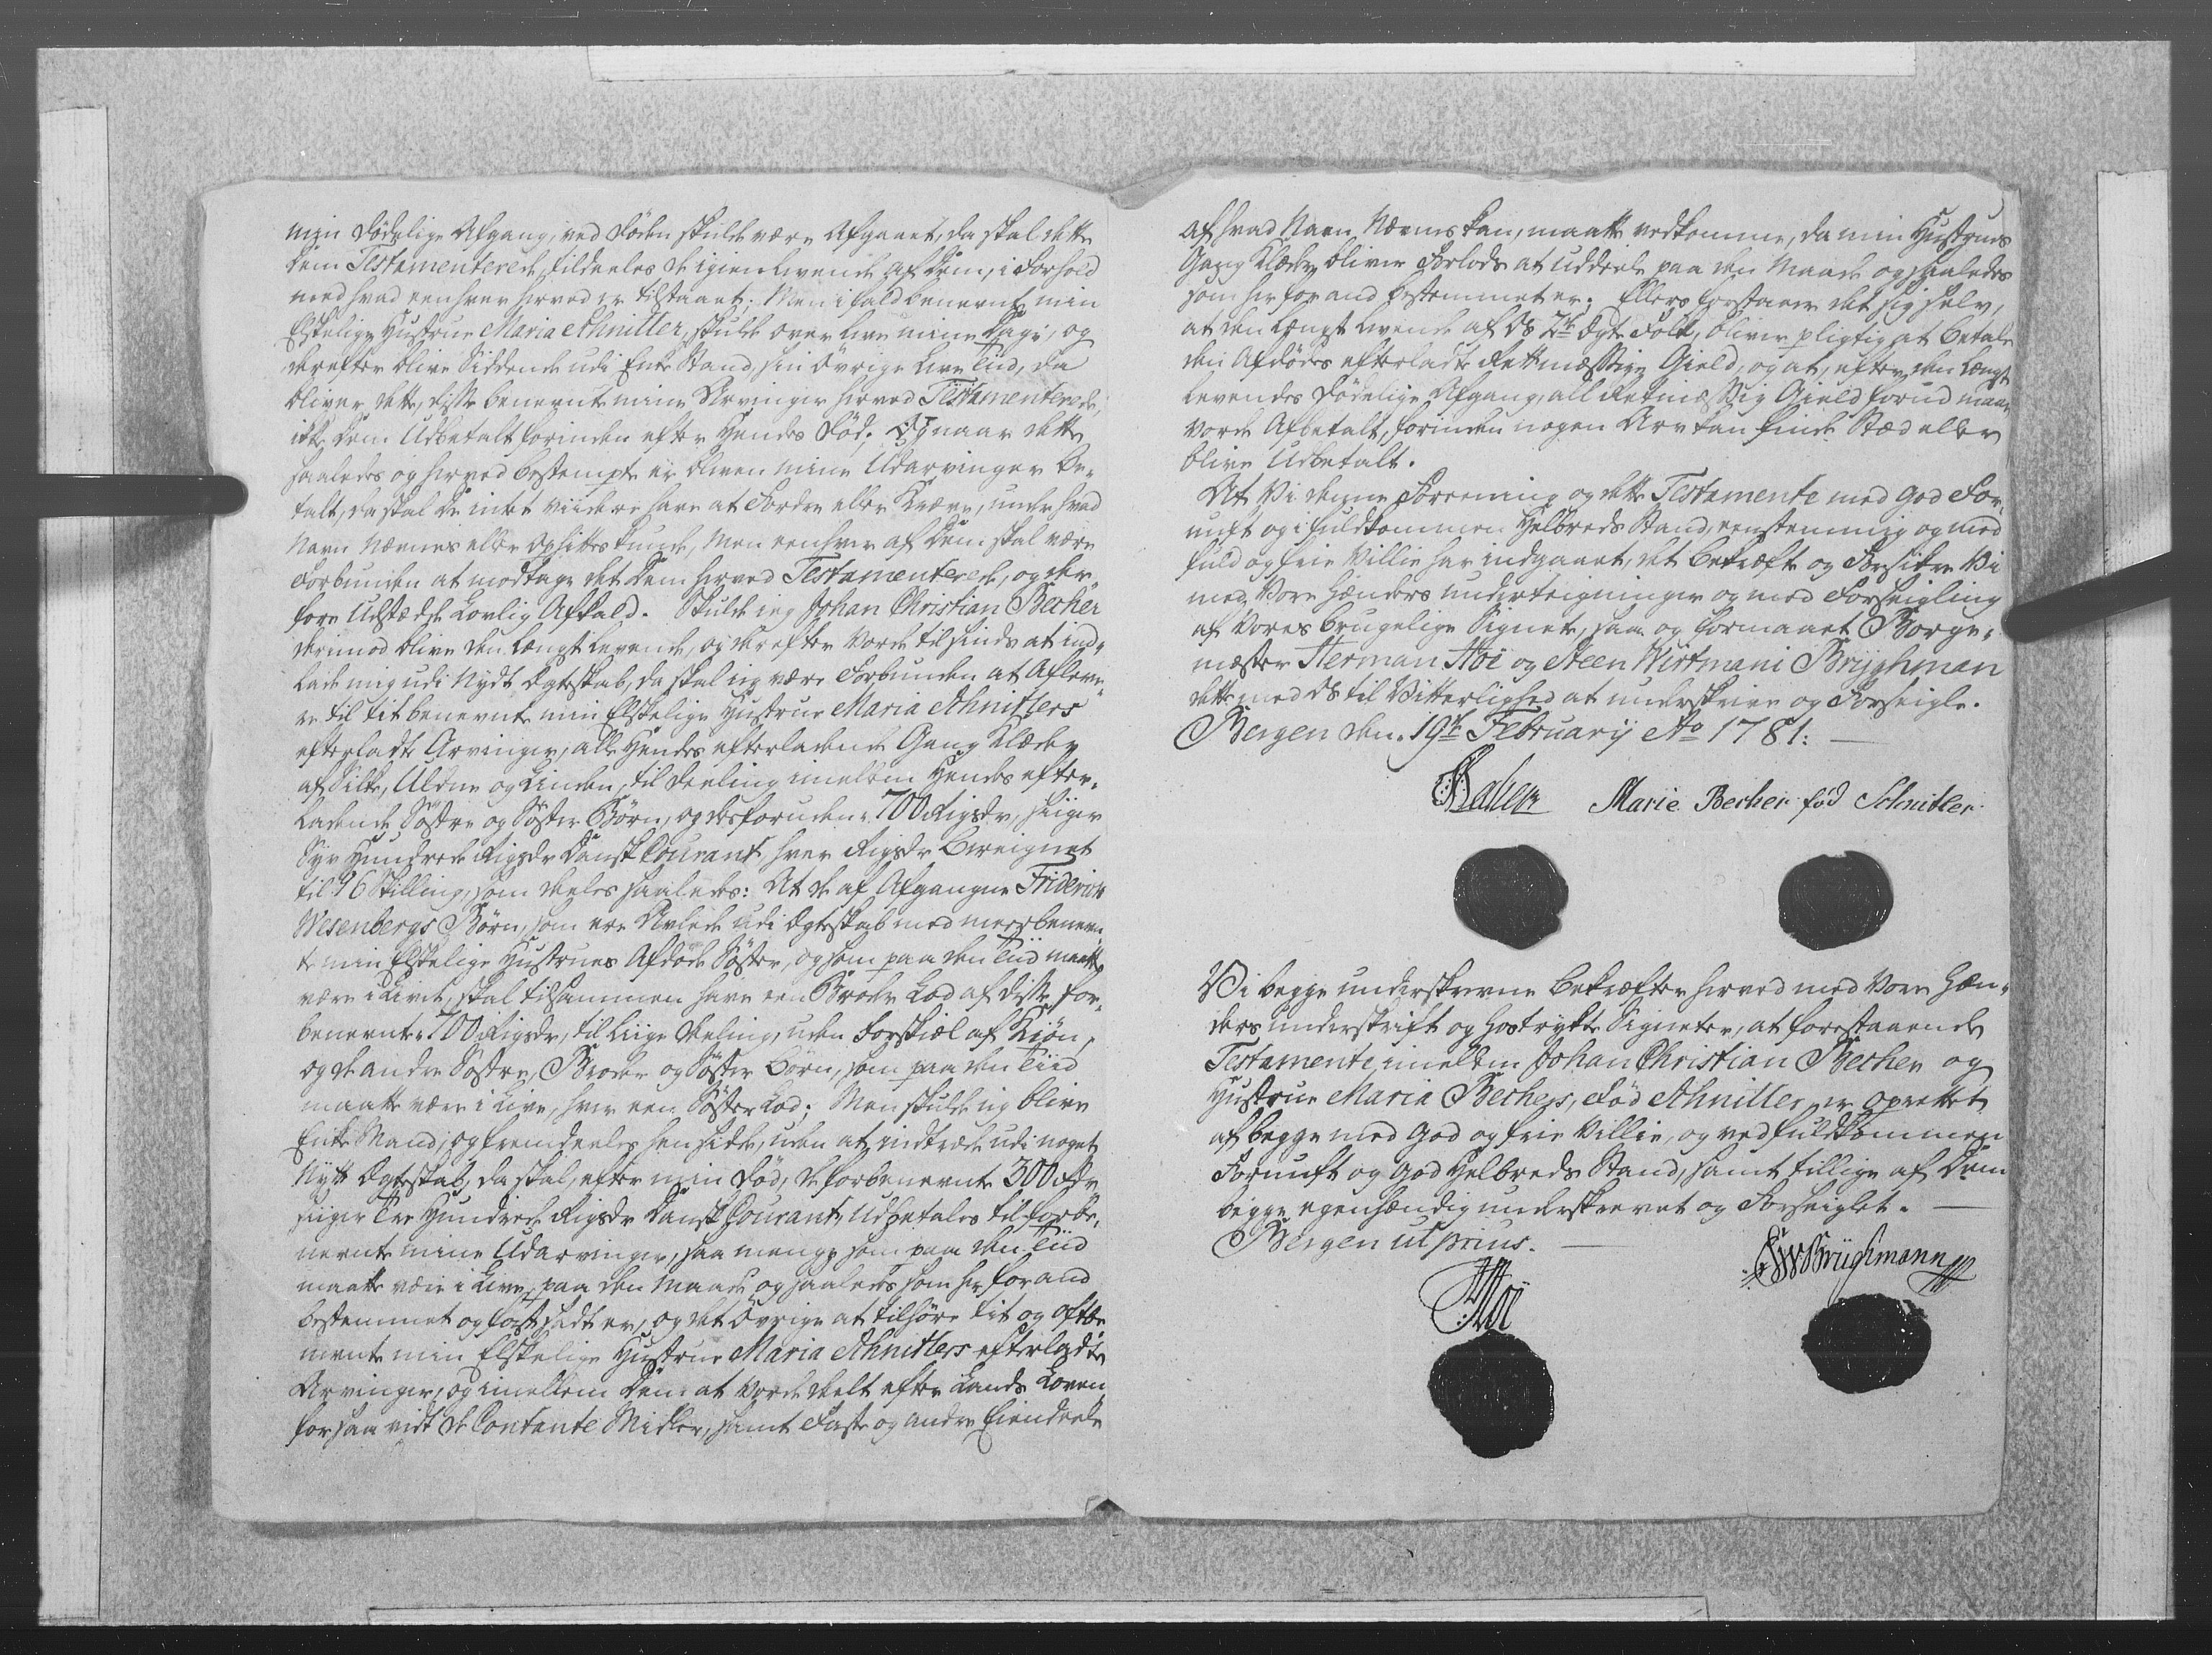 min dödelige Afgang, ved döden skulde være Afgaaet, da skal dette
dem Testamenterede, tildeeles de igienlevende af dem, i Forhold
med hvad eenhver herved er tilstaaet. Men ifald benevnte min
Elskelige Hustrue Maria Schnitler, skulde over leve mine Dage, og
derefter blive Siddende udi Enke Stand, sin övrige Leve Tiid, da
bliver dette, disse benevnte mine Arvinger herved Testamenterede,
ikke dem Udbetalt forinden efter Hendes död; Og naar dette
saaledes og herved bestempte er bleven mine Udarvinger be-
talt, da skal de intet viidere have at Fordre eller Kræve, under hvad
Navn Nævnes eller Ophittes kunde, Men eenhver af dem skal være
Forbunden at modtage det dem herved Testamenterede, og der-
fore Udstæde Lovlig Afkald. Skulde ieg Johan Christian Becher
derimod blive den Længstlevende, og derefter Vorde tilsinds at ind-
lade mig udi Nydt Ægteskab, da skal ieg være Forbunden at Afleve-
re til tit benevnte min Elskelige Hustrue Maria Schnitlers
efterladte Arvinger, alle Hendes efterladende Gang Klæder
af Silke, Uldne og Linden, til deeling imellem Hendes efter-
ladende Söstre og Söster Börn, og desforuden 700 Rigsdr, siiger
Syv Hundrede Rigsdr Dansk Courant, hver Rigsdr Bereignet
til 96 Skilling, som deeles saaledes: At de af Afgangne Friderich
Wesenbergs Börn, som ere Avlede udi Ægteskab med meerbenevn-
te min Elskelige Hustrues Afdöde Söster, og som paa den Tiid maatte
være i Livet, skal tilsammen have een Broder Lod af disse for-
benevnte 700 Rigsdr, til Liige deeling, uden Forskiæl af Kiön,
og de andre Söstre, Broder og Söster Börn, som paa den Tiid
maatte være i Live, hver een Söster Lod; Men skulde ieg blive
Enke Mand, og fremdeeles hensidde, uden at indtræde udi noget
Nytt Ægteskab, da skal, efter min död, de forbenevnte 300 Rdr
siiger Tre Hundrede Rigsdr Dansk Courant, Udbetales til forbe-
nevnte mine Udarvinger, saa mange som paa den Tiid
maatte være i Live, paa den Maade og saaledes som her forand
bestemmet og fastsadt er, og det övrige at tilhöre tit og ofte be
nevnte min Elskelige Hustrue Maria Schnitlers efterladte
Arvinger, og imellem dem at Vorde deelt efter Lands Loven,
forsaavidt de Contante Midler, samt Faste og andre Eiendeele
af hvad Navn Nævnes kan, maatte vedkomme, da min Hustrues
Gang Klæder bliver Forlods at Uddeele paa den Maade og saaledes
som her forand bestemmet er. Ellers forstaaer det sig selv,
at den Længst levende af Os 2de Ægte Folk, bliver pligtig at betale
den Afdödes efterladte Rettmæssige Gield, og at, efter den Længst
levendes dödelige Afgang, all Retmæssig Gield forud maae
Vorde Afbetalt, forinden nogen Arv kan finde Stæd eller
blive Udbetalt.
At Vi denne Forening og dette Testamente med god For-
nuft og i fuldkommen Helbreds Stand, eenstemmig og med
fuld og frie Villie har indgaaet, det bekræfte og Forsikre Vi
med Vore Hænders underteigninger og med Forseigling
af Vores brugelige Signete, saa og formaaet Borge-
mæster Herman Hoi og Steen Wirtmani Bryghman
dette med Os til Vitterlighed at underskrive og Forseigle.
Bergen den 19de February Ao 1781:
Becher Marie Becher föd Schnitler
Vi begge underskrevne bekræfter herved med Vore Hæn-
ders underskrift og hostrykte Signeter, at forestaaende
Testamente imellem Johan Christian Becher og
Hustrue Maria Bechers, Föd Schnitler, er oprettet
af begge med god og frie Villie, og ved fuldkommen
Fornuft og god Helbreds Stand, samt tillige af dem
begge egenhændig underskrevet og Forseiglet.
Bergen ut prius.
SWBrüghmann
HHoi